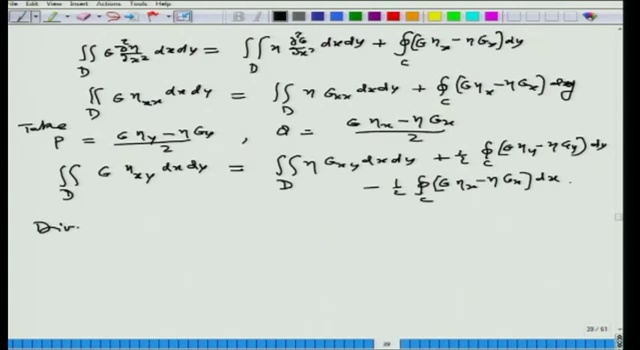 File Edit View Insert Actions Tools Help
∬_D G ∂²η/∂x² dxdy = ∬_D η ∂²G/∂x² dxdy + ∮_C (G η_x − η G_x) dy
∬_D G η_xx dxdy = ∬_D η G_xx dxdy + ∮_C (G η_x − η G_x) dy
Take P = (G η_y − η G_y)/2 , Q = (G η_x − η G_x)/2
∬_D G η_xy dxdy = ∬_D η G_xy dxdy + ½ ∮_C (G η_y − η G_y) dy
− ½ ∮_C (G η_x − η G_x) dx.
Div.